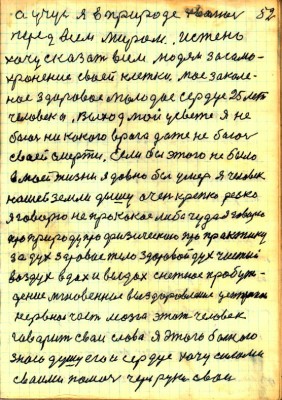 а учус я в природе 52
перед всем миром. Истень
хочу сказат всем людям за само-
хронение своей клетки, мое закале-
ное здоровое молодое сердце 25 лет
человека. Выход мой у свете я не
боюс ни какого врага даже не боюс
своей смерти. Если бы этого не было
в моей жизни я давно бы умер я человек
нашей земли дышу очен крепко резко
я говорю не про какое либо чудо я говорю
про природу про физическою про практику
за дух здравае тело здоровой дух чистый
воздух вдох и выдох снежное пробуж-
дение мгновенное выздоровление централ
нервная част мозга этот человек
гаварит сваи слова я этого болного
знаю душу его и сердце хочу силами
своими помоч через руки сваи